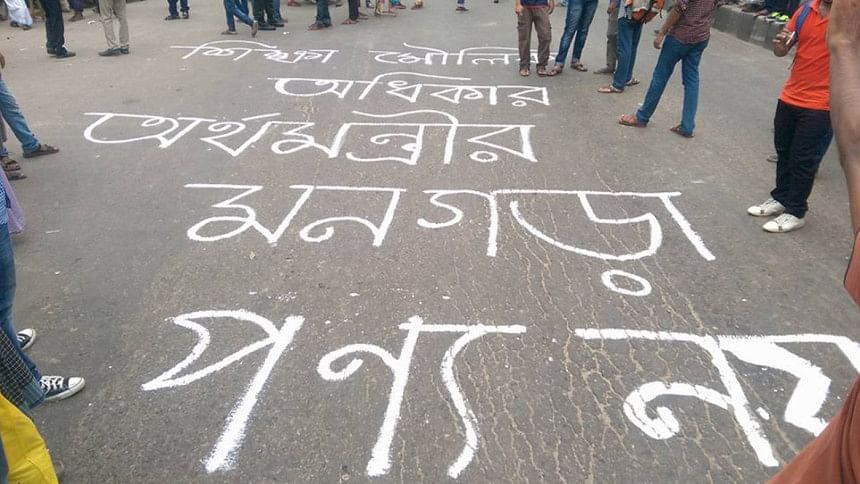 শিক্ষা মৌলিক
অধিকার
অর্থমন্ত্রীর
মনগড়া
পণ্য নয়